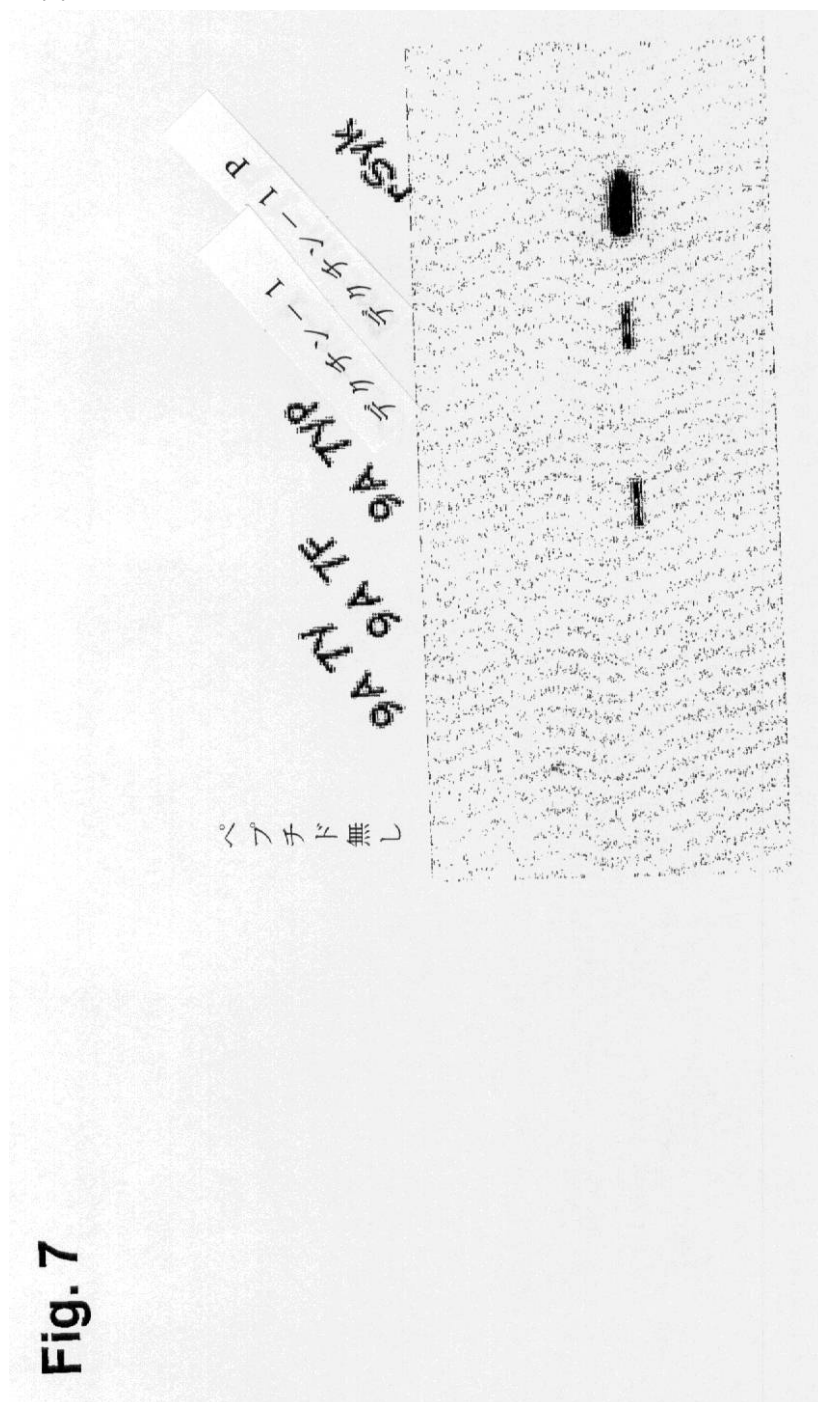 Fig. 7
ペプチド無し
9A TY
9A TF
9A TYP
デクチン-1
デクチン-1 P
rSyk